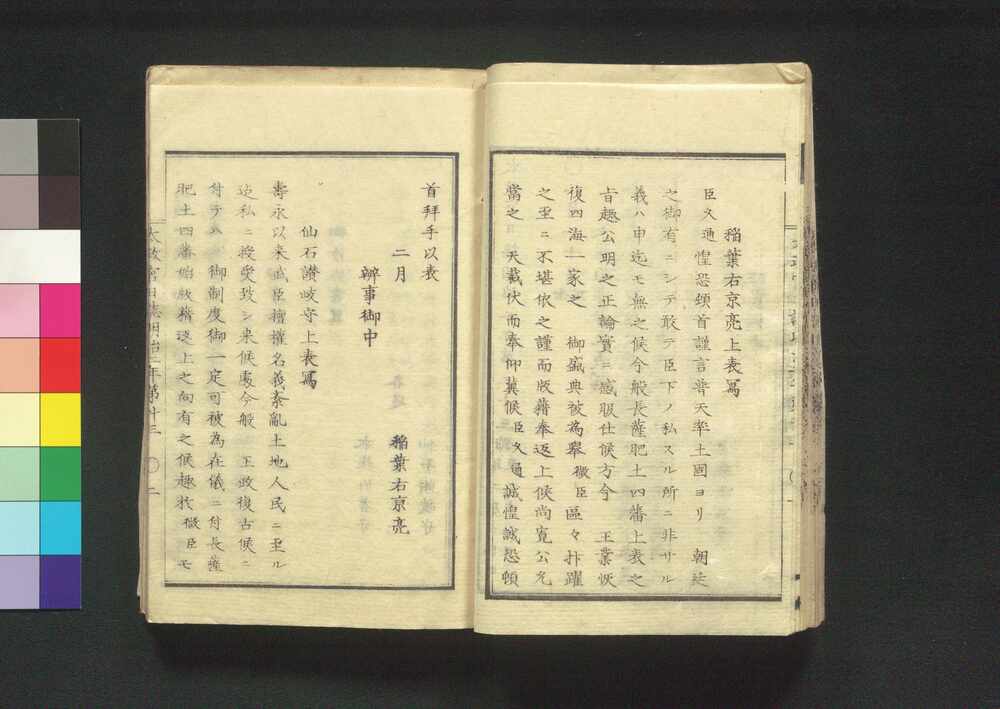 稲葉右京亮上表寫
臣久通惶恐頓首謹言普天率土固ヨリ　朝廷
之御有ニシテ敢テ臣下ノ私スル所ニ非サル
義ハ申迄モ無之候今般長薩肥土四藩上表之
旨趣公明之正論實ニ感服仕候方今　王業恢
復四海一家之　御盛典被為擧微臣區々抃躍
之至ニ不堪依之謹而版籍奉返上候尚寛公允
當之　天裁伏而奉仰冀候臣久通誠惶誠恐頓
首拜手以表
二月　稲葉右京亮
辨事御中
仙石讃岐守上表寫
壽永以来武臣擅權名義紊亂土地人民ニ至ル
迄私ニ授受致シ来候處今般　王政復古候ニ
付テハ　御制度御一定可被為在儀ニ付長薩
肥土四藩始版籍返上之向有之候趣扨微臣モ
太政官日誌明治二年第十三　〇　二